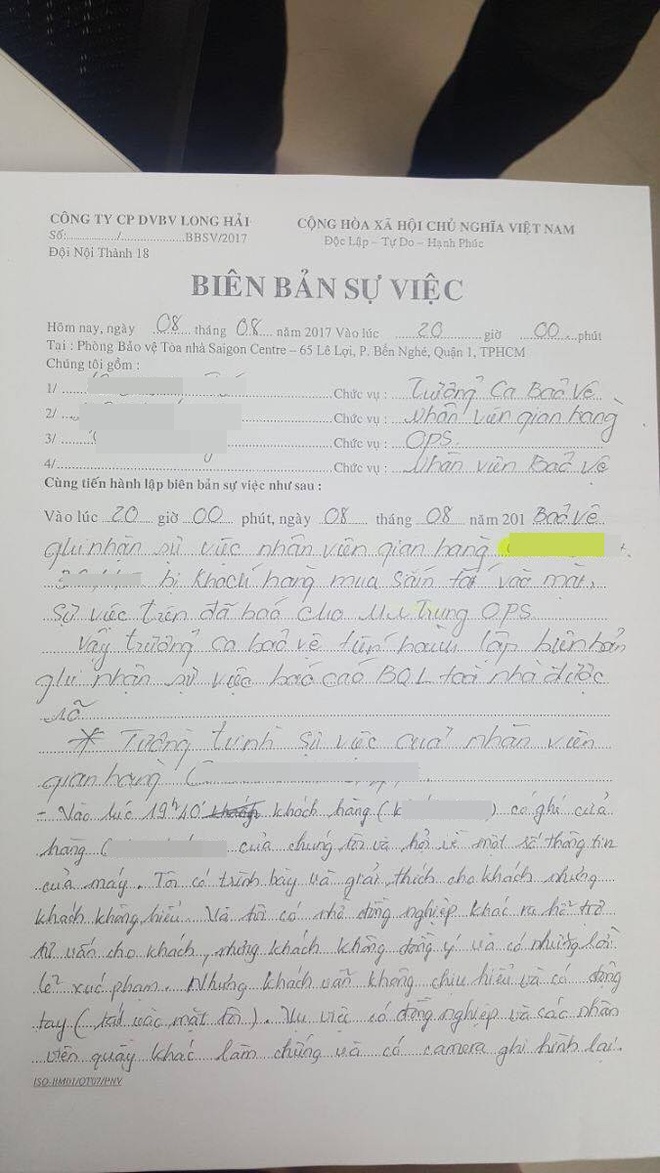 CÔNG TY CP DVBV LONG HẢI
CỘNG HÒA XÃ HỘI CHỦ NGHĨA VIỆT NAM
Số:................/....................BBSV/2017
Độc Lập – Tự Do – Hạnh Phúc
Đội Nội Thành 18
BIÊN BẢN SỰ VIỆC
Hôm nay, ngày 08 tháng 08 năm 2017 Vào lúc 20 giờ 00 phút
Tại : Phòng Bảo vệ Tòa nhà Saigon Centre – 65 Lê Lợi, P. Bến Nghé, Quận 1, TPHCM
Chúng tôi gồm :
1/ Chức vụ : Trưởng Ca Bảo Vệ
2/ Chức vụ : Nhân viên gian hàng
3/ Chức vụ : OPS
4/ Chức vụ : Nhân viên Bảo vệ
Cùng tiến hành lập biên bản sự việc như sau :
Vào lúc 20 giờ 00 phút, ngày 08 tháng 08 năm 201 Bảo vệ
ghi nhận sự việc nhân viên gian hàng
bị khách hàng mua sắm tát vào mặt,
sự việc trên đã báo cho Mr Trung OPS.
Vậy trưởng ca bảo vệ tiến hành lập biên bản
ghi nhận sự việc báo cáo BQL toà nhà được
rõ
* Tường trình sự việc của nhân viên
gian hàng (
- Vào lúc 19h10' khách hàng ( ) có ghé cửa
hàng ( của chúng tôi và hỏi về một số thông tin
của máy. Tôi có trình bày và giải thích cho khách nhưng
khách không hiểu. Và tôi có nhờ đồng nghiệp khác ra hỗ trợ
tư vấn cho khách, nhưng khách không đồng ý và có những lời
lẽ xúc phạm. Nhưng khách vẫn không chịu hiểu và có động
tay ( tát vào mặt tôi ). Vụ việc có đồng nghiệp và các nhân
viên quầy khác làm chứng và có camera ghi hình lại.
ISO-BM01/QT07/PNV